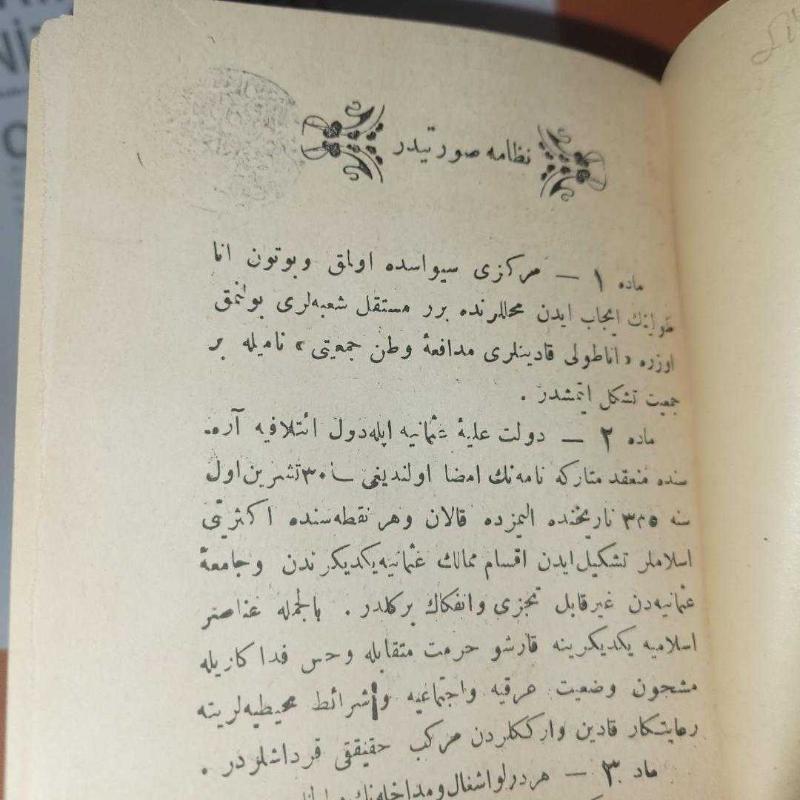 نظامه صورتیدر
ماده ۱ — مرکزی سیواسده اولمق وبوتون انا
طولینك ایجاب ایدن محللرنده برر مستقل شعبه‌لری بولنمق
اوزره «اناطولی قادینلری مدافعهٔ وطن جمعیتی» نامیله بر
جمعیت تشکل ایتمشدر .
ماده ۲ — دولت علیهٔ عثمانیه ایله دول ائتلافیه آره‌
سنده منعقد متارکه نامه‌نك امضا اولندیغی ۳۰ تشرین اول
سنه ۳۳۵ تاریخنده الیمزده قالان وهر نقطه‌سنده اکثریتی
اسلاملر تشکیل ایدن اقسام ممالك عثمانیه یکدیکرندن وجامعهٔ
عثمانیه‌دن غیرقابل تجزی وانفکاك برکلدر . بالجمله عناصر
اسلامیه یکدیکرینه قارشو حرمت متقابله وحس فداکاریله
مشحون وضعیت عرقیه واجتماعیه و شرائط محیطیه‌لرینه
رعایتکار قادین وارککلردن مرکب حقیقی قرداشلردر .
ماد ۳ — هردرلو اشغال ومداخله‌نك